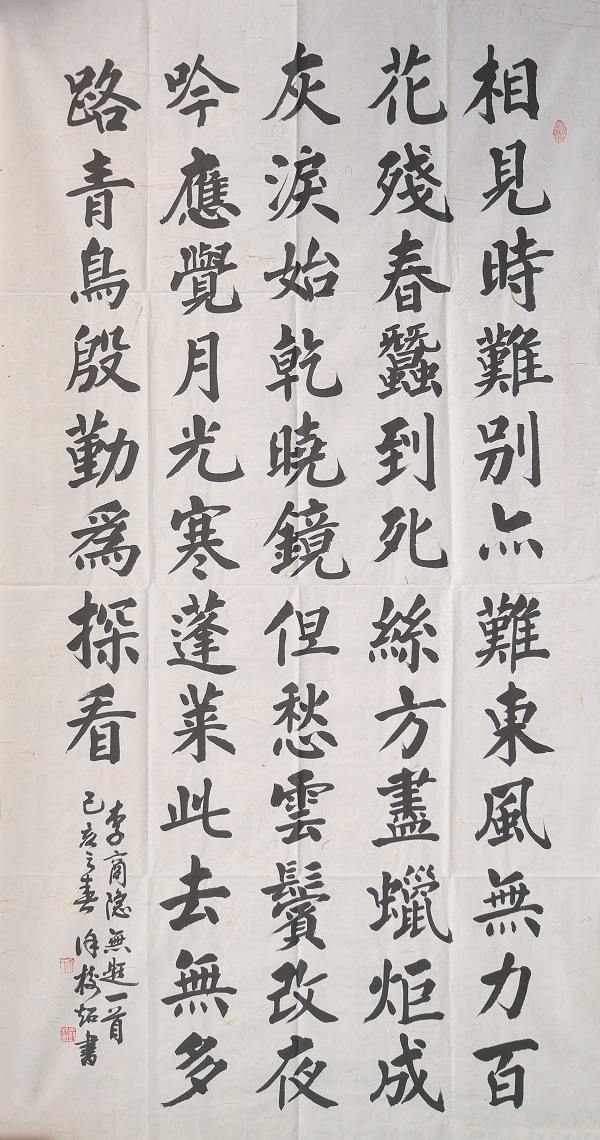 相見時難別亦難東風無力百
花殘春蠶到死絲方盡蠟炬成
灰淚始乾曉鏡但愁雲鬢改夜
吟應覺月光寒蓬萊此去無多
路青鳥殷勤為探看
李商隱無題一首
己亥之春 書